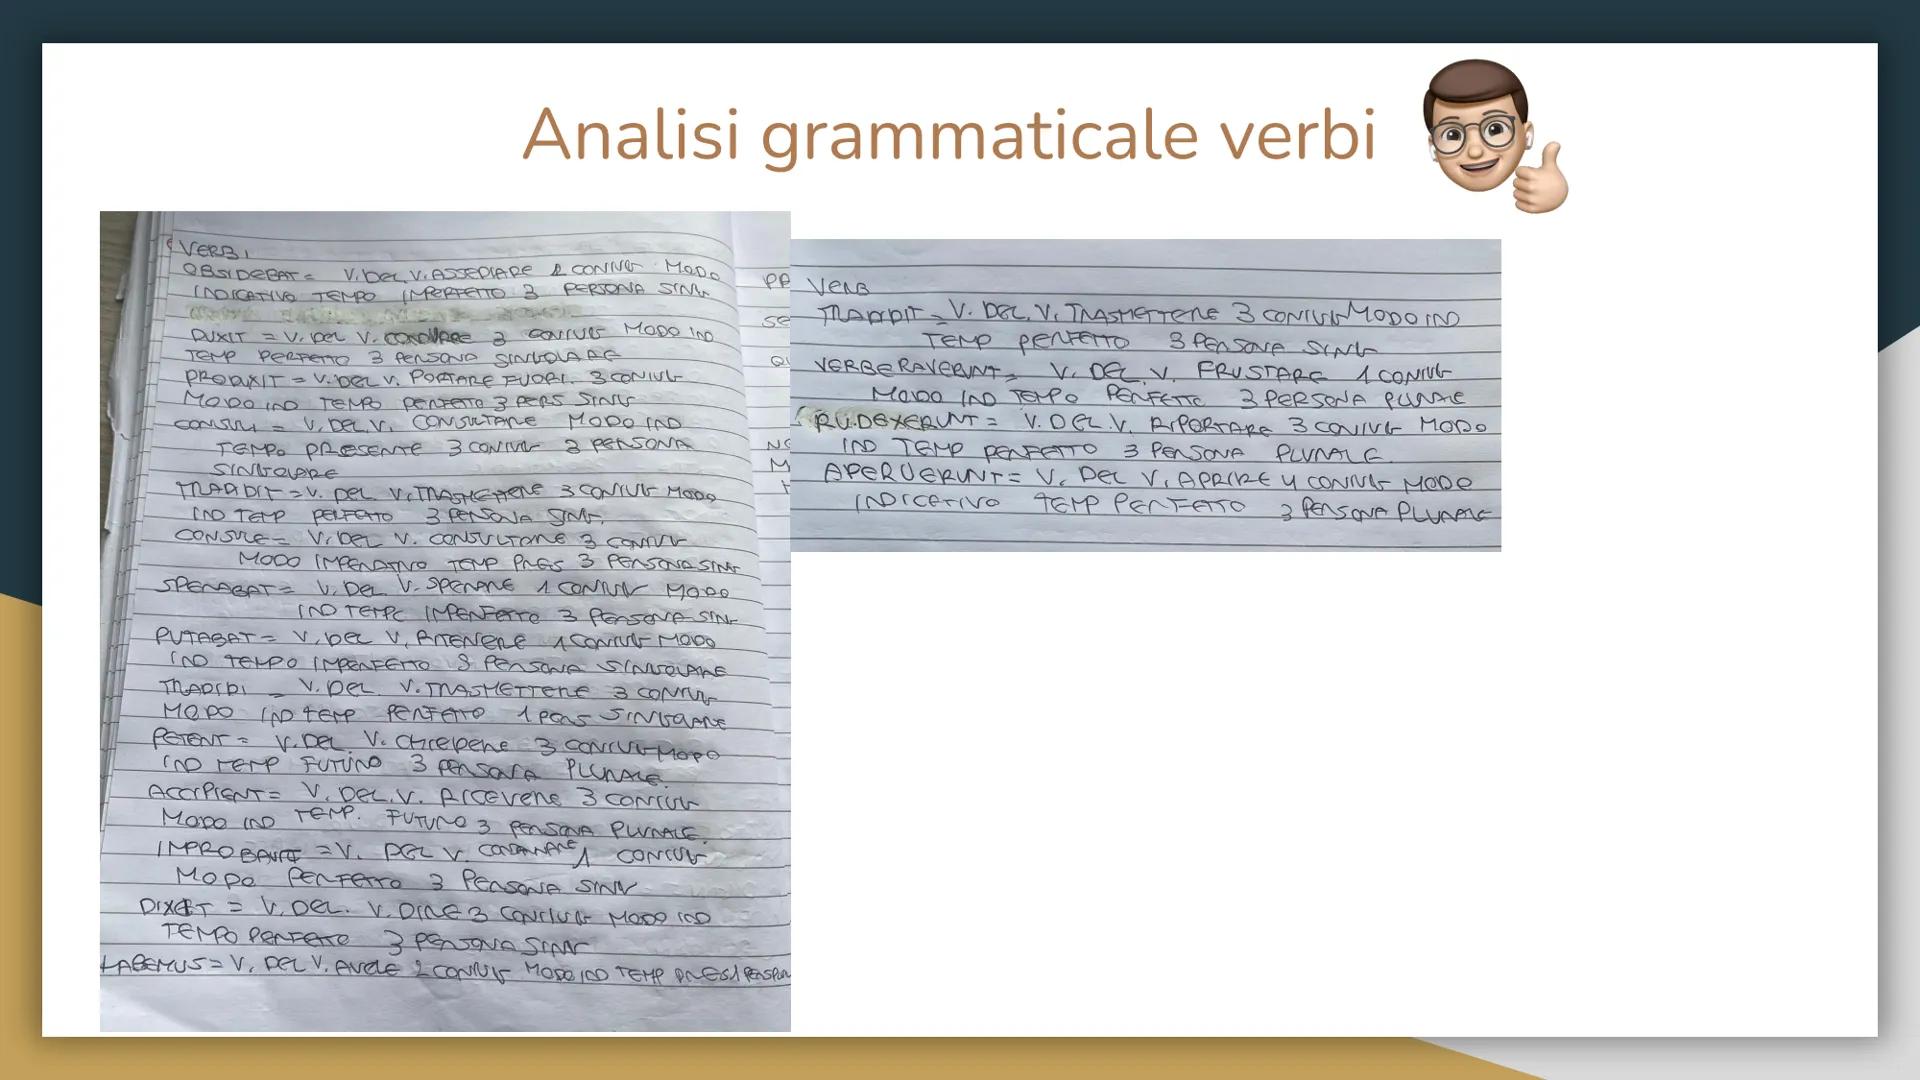 Analisi grammaticale verbi
VERBI
OBSIDEBAT = V. DEL V. ASSEDIARE 2 CONIUG MODO
INDICATIVO TEMPO IMPERFETTO 3 PERSONA SING
DUXIT = V. DEL V. CONDURRE 3 CONIUG MODO IND
TEMP PERFETTO 3 PERSONA SINGOLARE
PRODUXIT = V. DEL V. PORTARE FUORI. 3 CONIUG
MODO IND TEMPO PERFETTO 3 PERS SING
= V. DEL V. CONSULTARE MODO IND
TEMPO PRESENTE 3 CONIUG 3 PERSONA
SINGOLARE
TRADIDIT = V. DEL V. TRASMETTERE 3 CONIUG MODO
IND TEMP PERFETTO 3 PERSONA SING.
CONSULE = V. DEL V. CONSULTARE 3 CONIUG
MODO IMPERATIVO TEMP PRES 3 PERSONA SING
SPERABAT = V. DEL V. SPERARE 1 CONIUG MODO
IND TEMPO IMPERFETTO 3 PERSONA SING
PUTABAT = V. DEL V. RITENERE 1 CONIUG MODO
IND TEMPO IMPERFETTO 3 PERSONA SINGOLARE
TRADIDI = V. DEL V. TRASMETTERE 3 CONIUG
MODO IND TEMP PERFETTO 1 PERS SINGOLARE
PETENT = V. DEL V. CHIEDERE 3 CONIUG MODO
IND TEMP FUTURO 3 PERSONA PLURALE.
ACCIPIENT = V. DEL. V. RICEVERE 3 CONIUG
MODO IND TEMP. FUTURO 3 PERSONA PLURALE.
= V. DEL V. CONDANNARE 1 CONIUG
MODO PERFETTO 3 PERSONA SING
DIXIT = V. DEL. V. DIRE 3 CONIUG MODO IND
TEMPO PERFETTO 3 PERSONA SING
HABEMUS = V. DEL V. AVERE 2 CONIUG MODO IND TEMP PRES 1 PERS PLUR
VERB
TRADIDIT = V. DEL. V. TRASMETTERE 3 CONIUG MODO IND
TEMP PERFETTO 3 PERSONA SING
VERBERAVERUNT = V. DEL V. FRUSTARE 1 CONIUG
MODO IND TEMPO PERFETTO 3 PERSONA PLURALE
= V. DEL. V. RIPORTARE 3 CONIUG MODO
IND TEMP PERFETTO 3 PERSONA PLURALE.
APERUERUNT = V. DEL V. APRIRE 4 CONIUG MODO
INDICATIVO TEMP PERFETTO 3 PERSONA PLURALE